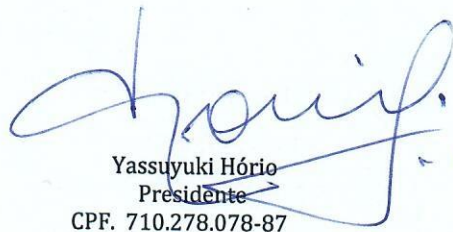 Yassuyuki Hório
Presidente
CPF. 710.278.078-87